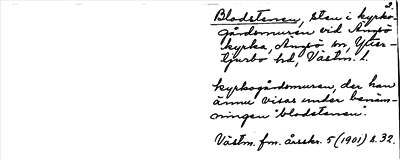 3.
Blodstenen, sten i kyrko-
gårdsmuren vid Ängsö
kyrka, Ängsö sn, Ytter-
tjurbo hd, Västm. l.
kyrkogårdsmuren, der han
ännu visas under benäm-
ningen "blodstenen".
Västm. fm. årsskr. 5 (1901) s. 32.